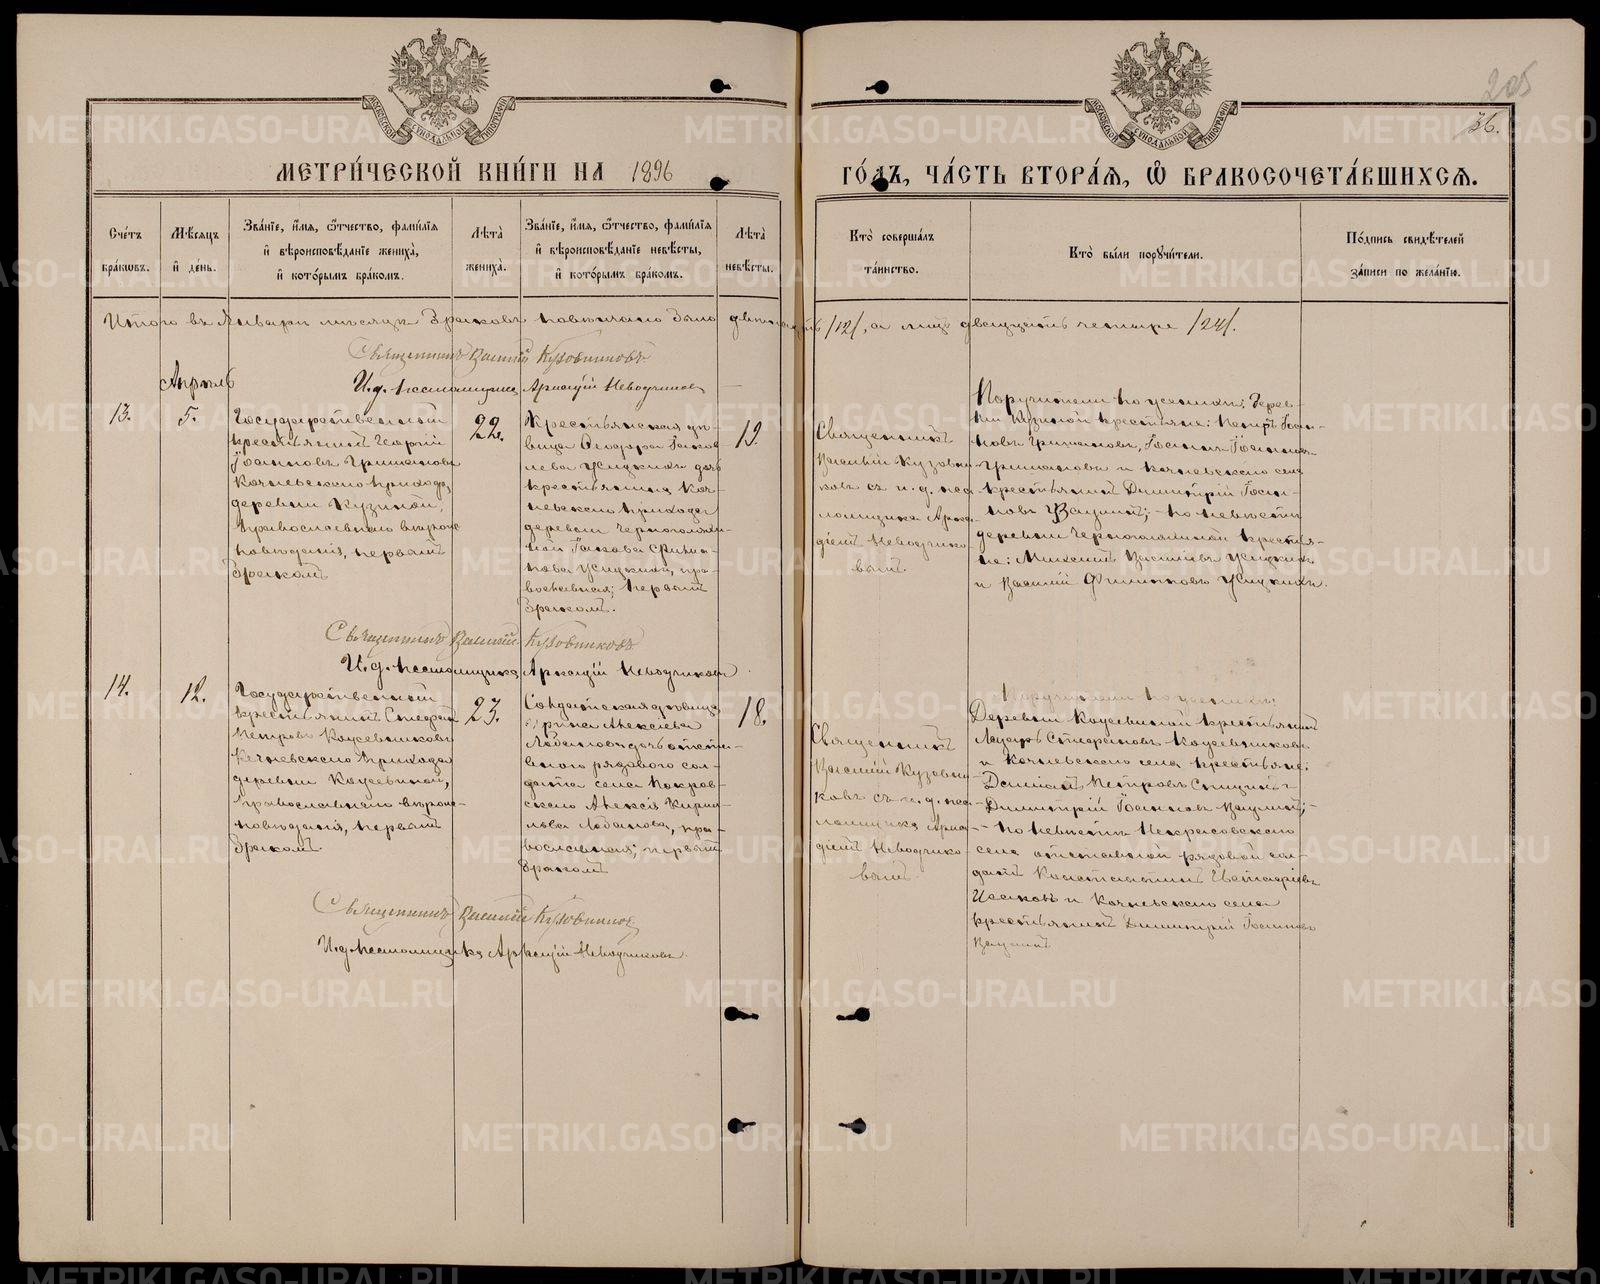 205
36.
МОСКОВСКОЙ СѴНОДАЛЬНОЙ ТИПОГРАФІИ
МОСКОВСКОЙ СѴНОДАЛЬНОЙ ТИПОГРАФІИ
МЕТРИ́ЧЕСКОЙ КНИ́ГИ НА 1896 ГО́ДЪ, ЧА́СТЬ ВТОРА́Я, Ѽ БРАКОСОЧЕТА́ВШИХСЯ.
Сче́тъ бра́ковъ.
Мѣ́сяцъ и҆ де́нь.
Зва́нїе, и҆́мя, ѻ҆́тчество, фами́лїя и҆ вѣроисповѣ́данїе жениха̀, и҆ кото́рымъ бра́комъ.
Лѣта̀ жениха̀.
Зва́нїе, и҆́мя, ѻ҆́тчество, фами́лїя и҆ вѣроисповѣ́данїе невѣ́сты, и҆ кото́рымъ бра́комъ.
Лѣта̀ невѣ́сты.
Кто̀ соверша́лъ та́инство.
Кто̀ бы́ли порꙋчи́тели.
По́дпись свидѣ́телей за́писи по жела́нїю.
Итого въ Январѣ мѣсяцѣ браковъ повѣнчано было двѣнадцать /12/, а лицъ двадцать четыре /24/.
Священникъ Василій Кузовниковъ
И. д. псаломщика Аркадій Неводчиковъ
Апрѣль
13.
5.
Государственный
крестьянинъ Георгій
Іоанновъ Гришановъ
Кочневскаго прихода,
деревни Кузиной,
православнаго вѣроис-
повѣданія, первымъ
бракомъ
22.
Крестьянская дѣ-
вица Ѳеодора Іаков-
лева дочь
крестьянина Коч-
невскаго прихода
деревни Черноголяши-
ной Іакова Филип-
пова пра-
вославная; первымъ
бракомъ.
19.
Священникъ
Василій Кузовни-
ковъ съ и. д. пса-
ломщика Арка-
діемъ Неводчико-
вымъ.
Поручители по женихѣ: Дерев-
ни Кузиной крестьяне: Петръ Іоан-
новъ Гришановъ, Іоаннъ
Гришановъ и Кочневскаго села
крестьянинъ Димитрій Іоан-
новъ Вацкій; – по невѣстѣ
деревни Черноголяшиной крестья-
не: Василіевъ
и Василій Филипповъ
Священникъ Василій Кузовниковъ
И. д. псаломщика Аркадій Неводчиковъ
14.
12.
Государственный
крестьянинъ Стефанъ
Петровъ
Кочневскаго прихода
деревни
православнаго вѣроис-
повѣданія, первымъ
бракомъ.
23.
Солдатская дѣвица
Ирина Алексіева
Лобанова дочь отстав-
наго рядового сол-
дата села Покров-
скаго Алексія Кирил-
лова Лобанова, пра-
вославная; первымъ
бракомъ
18.
Священникъ
Василій Кузовни-
ковъ съ и. д. пса-
ломщика Арка-
діемъ Неводчико-
вымъ.
Поручители по женихѣ:
Деревни крестьянинъ
Лазарь Стефановъ
и Кочневскаго села крестьяне:
Петровъ и
Димитрій Іоанновъ Вацкій;
– по невѣстѣ Некрасовскаго
села отставной рядовой сол-
датъ Константинъ
Исаковъ и Кочневскаго села
крестьянинъ Димитрій Іоанновъ
Вацкій
Священникъ Василій Кузовниковъ
И. д. псаломщика Аркадій Неводчиковъ.
METRIKI.GASO-URAL.RU